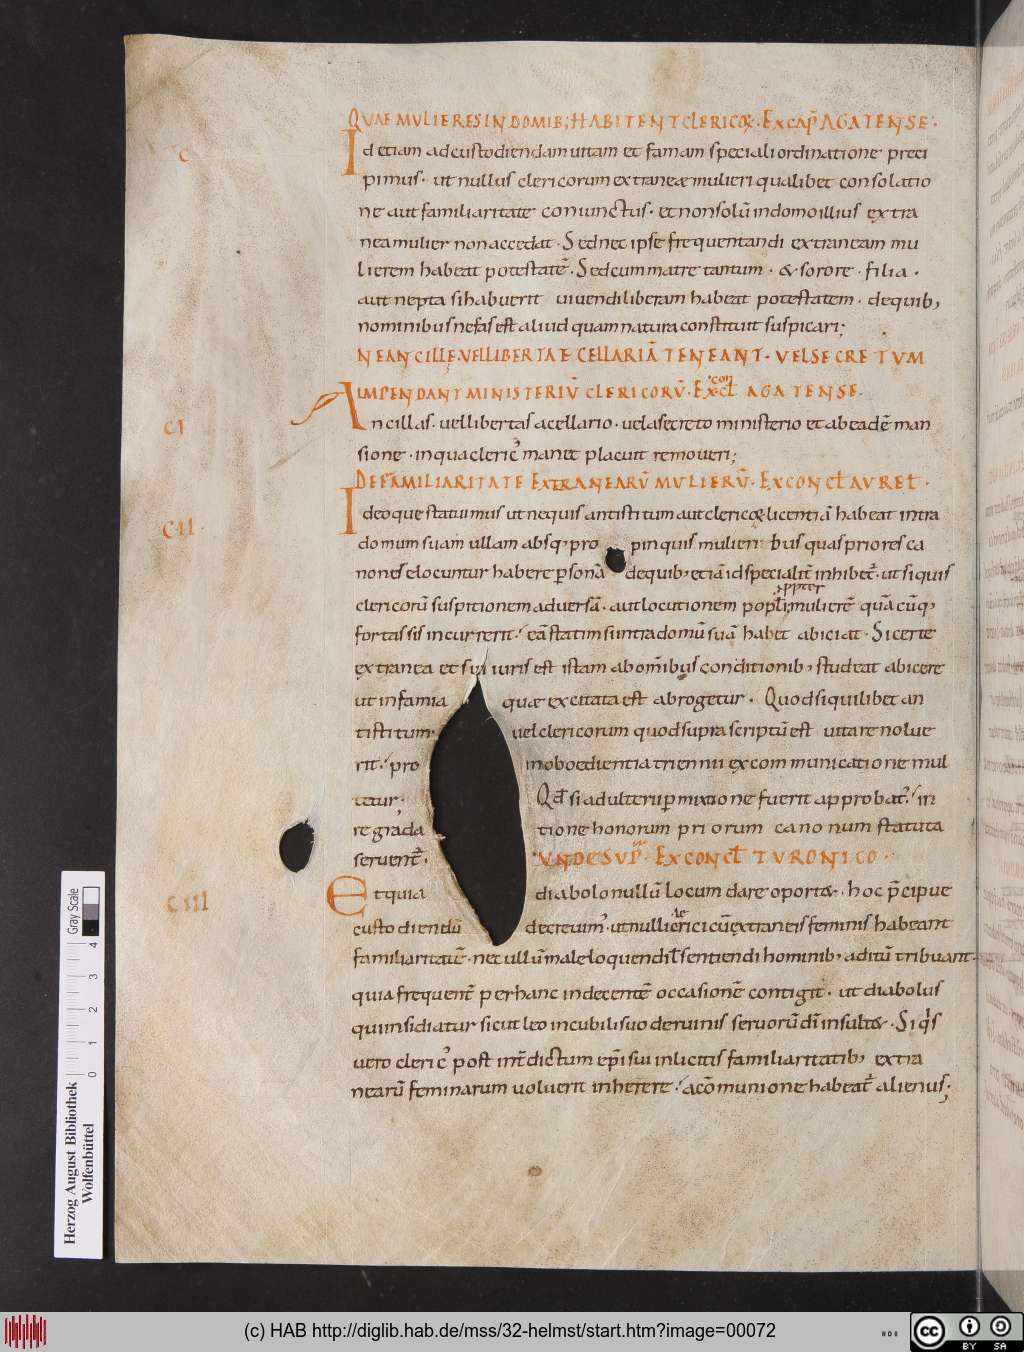 QUAE MULIERES IN DOMIB; HABITENT CLERICOꝜ. EX CAP̄ AGATENSE.
C
Id etiam ad custodiendam uitam et famam speciali ordinatione preci
pimus. ut nullus clericorum extraneæ mulieri qualibet consolatio
ne aut familiaritate coniunctus. et non solū in domo illius extra
nea mulier non accedat. Sed nec ipse frequentandi extraneam mu
lierem habeat potestatē. Sed cum matre tantum. & sorore. filia.
aut nepta si habuerit uiuendi liberam habeat potestatem. de quib,
nominibus nefas est aliud quam natura constituit suspicari;
NE ANCILLE. VEL LIBERTAE CELLARIĀ TENEANT. VEL SECRETUM
IMPENDANT MINISTERIŪ CLERICORŪ. EX con CL̄ AGATENSE.
CI
Ancillas. uel libertas a cellario. uel a secreto ministerio et ab eadē man
sione. in qua cleric᾽ manet placuit remoueri;
DE FAMILIARITATE EXTRANEARŪ MULIERŪ. EX CONCL̄ AUREL̄.
CII.
Ideoque statuimus ut nequis antistitum aut clericoꝝ licentiā habeat intra
domum suam ullam absq, pro pinquis mulieri bus quas priores ca
nones elocuntur habere ꝑsonā de quib, etiā id specialit̄ inhibet᾽. ut si quis
clericorū suspitionem aduersā. aut locutionem popl̄i ꝓpter mulierē quācūq,
fortassis incurrerit. eā statim si intra domū suā habet abiciat. Si certe
extranea et sui iuris est istam ab om̄ibus conditionib, studeat abicere
ut infamia quæ excitata est abrogetur. Quod si quilibet an
tistitum. uel clericorum quod supra scriptū est uitare nolue
rit. pro inoboedientia triennii excommunicatione mul
tetur. Qd̄ si adulterii ꝑmixtione fuerit approbat᾽. in
te grada tione honorum priorum canonum statuta
seruent᾽.
UNDE SUP̄. EX CONCL̄ TURONICO.
CIII
Et quia diabolo nullū locum dare oport&. hoc p̄cipue
custodiendū decreuim᾽. ut nulli clerici cū extraneis feminis habeant
familiaritatē. nec ullū male loquendi l̄ sentiendi hominib, aditū tribuant.
quia frequent᾽ per hanc indecentē occasionē contigit. ut diabolus
qui insidiatur sicut leo in cubili suo de ruinis seruorū dī insult&. Si q̇s
uero cleric᾽ post int̄dictum ep̄i sui inlicitis familiaritatib, extra
nearū feminarum uoluerit inherere. a cōmunione habeat᾽ alienus;
Herzog August Bibliothek
Wolfenbüttel
0 1 2 3 4
Gray Scale
(c) HAB http://diglib.hab.de/mss/32-helmst/start.htm?image=00072
cc
BY SA